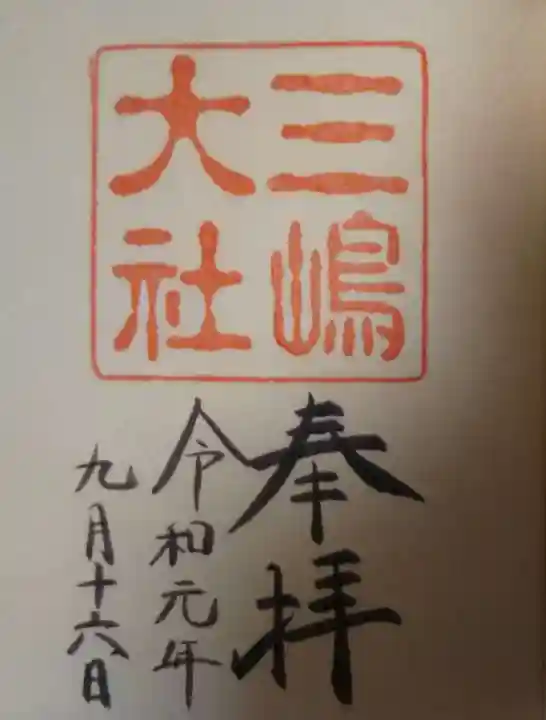 三嶋
大社
奉拝
令和元年
九月十六日